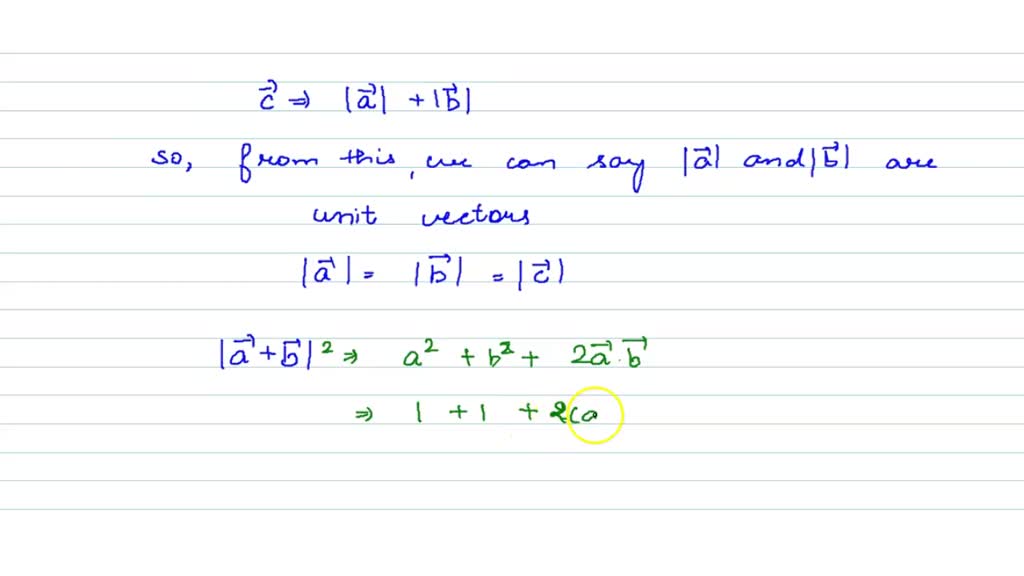 c⃗ ⇒ |a⃗| + |b⃗|
so, from this, we can say |a⃗| and |b⃗| are
unit vectors
|a⃗| = |b⃗| = |c⃗|
|a⃗ + b⃗|² ⇒ a² + b² + 2a⃗.b⃗
⇒ 1 + 1 + 2(a